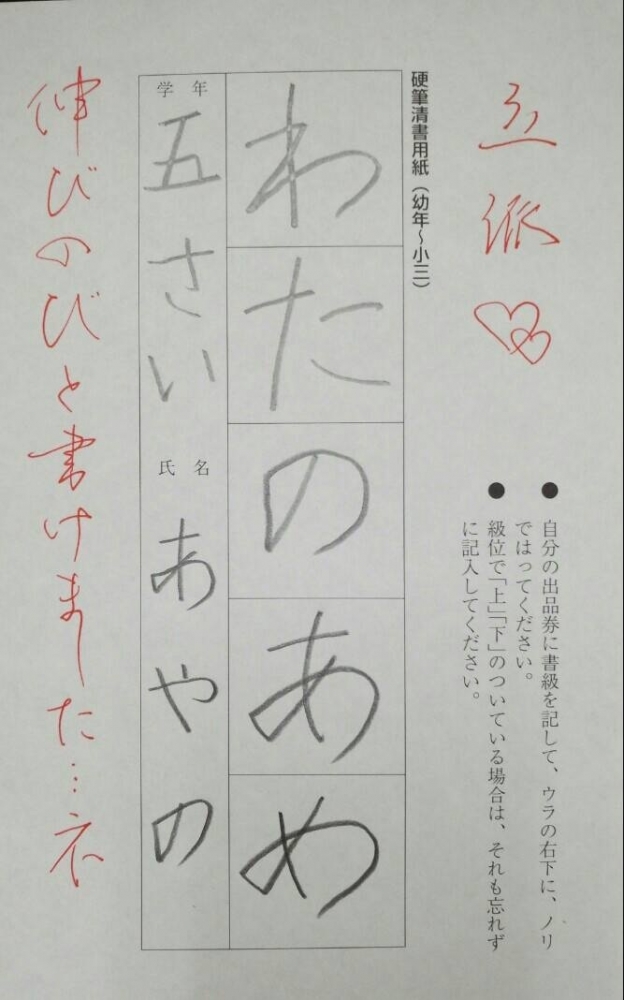 立派
● 自分の出品券に書級を記して、ウラの右下に、ノリ
ではってください。
● 級位で「上」「下」のついている場合は、それも忘れず
に記入してください。
硬筆清書用紙（幼年〜小三）
わたのあめ
学年
五さい
氏名
あやの
伸びのびと書けました…ネ